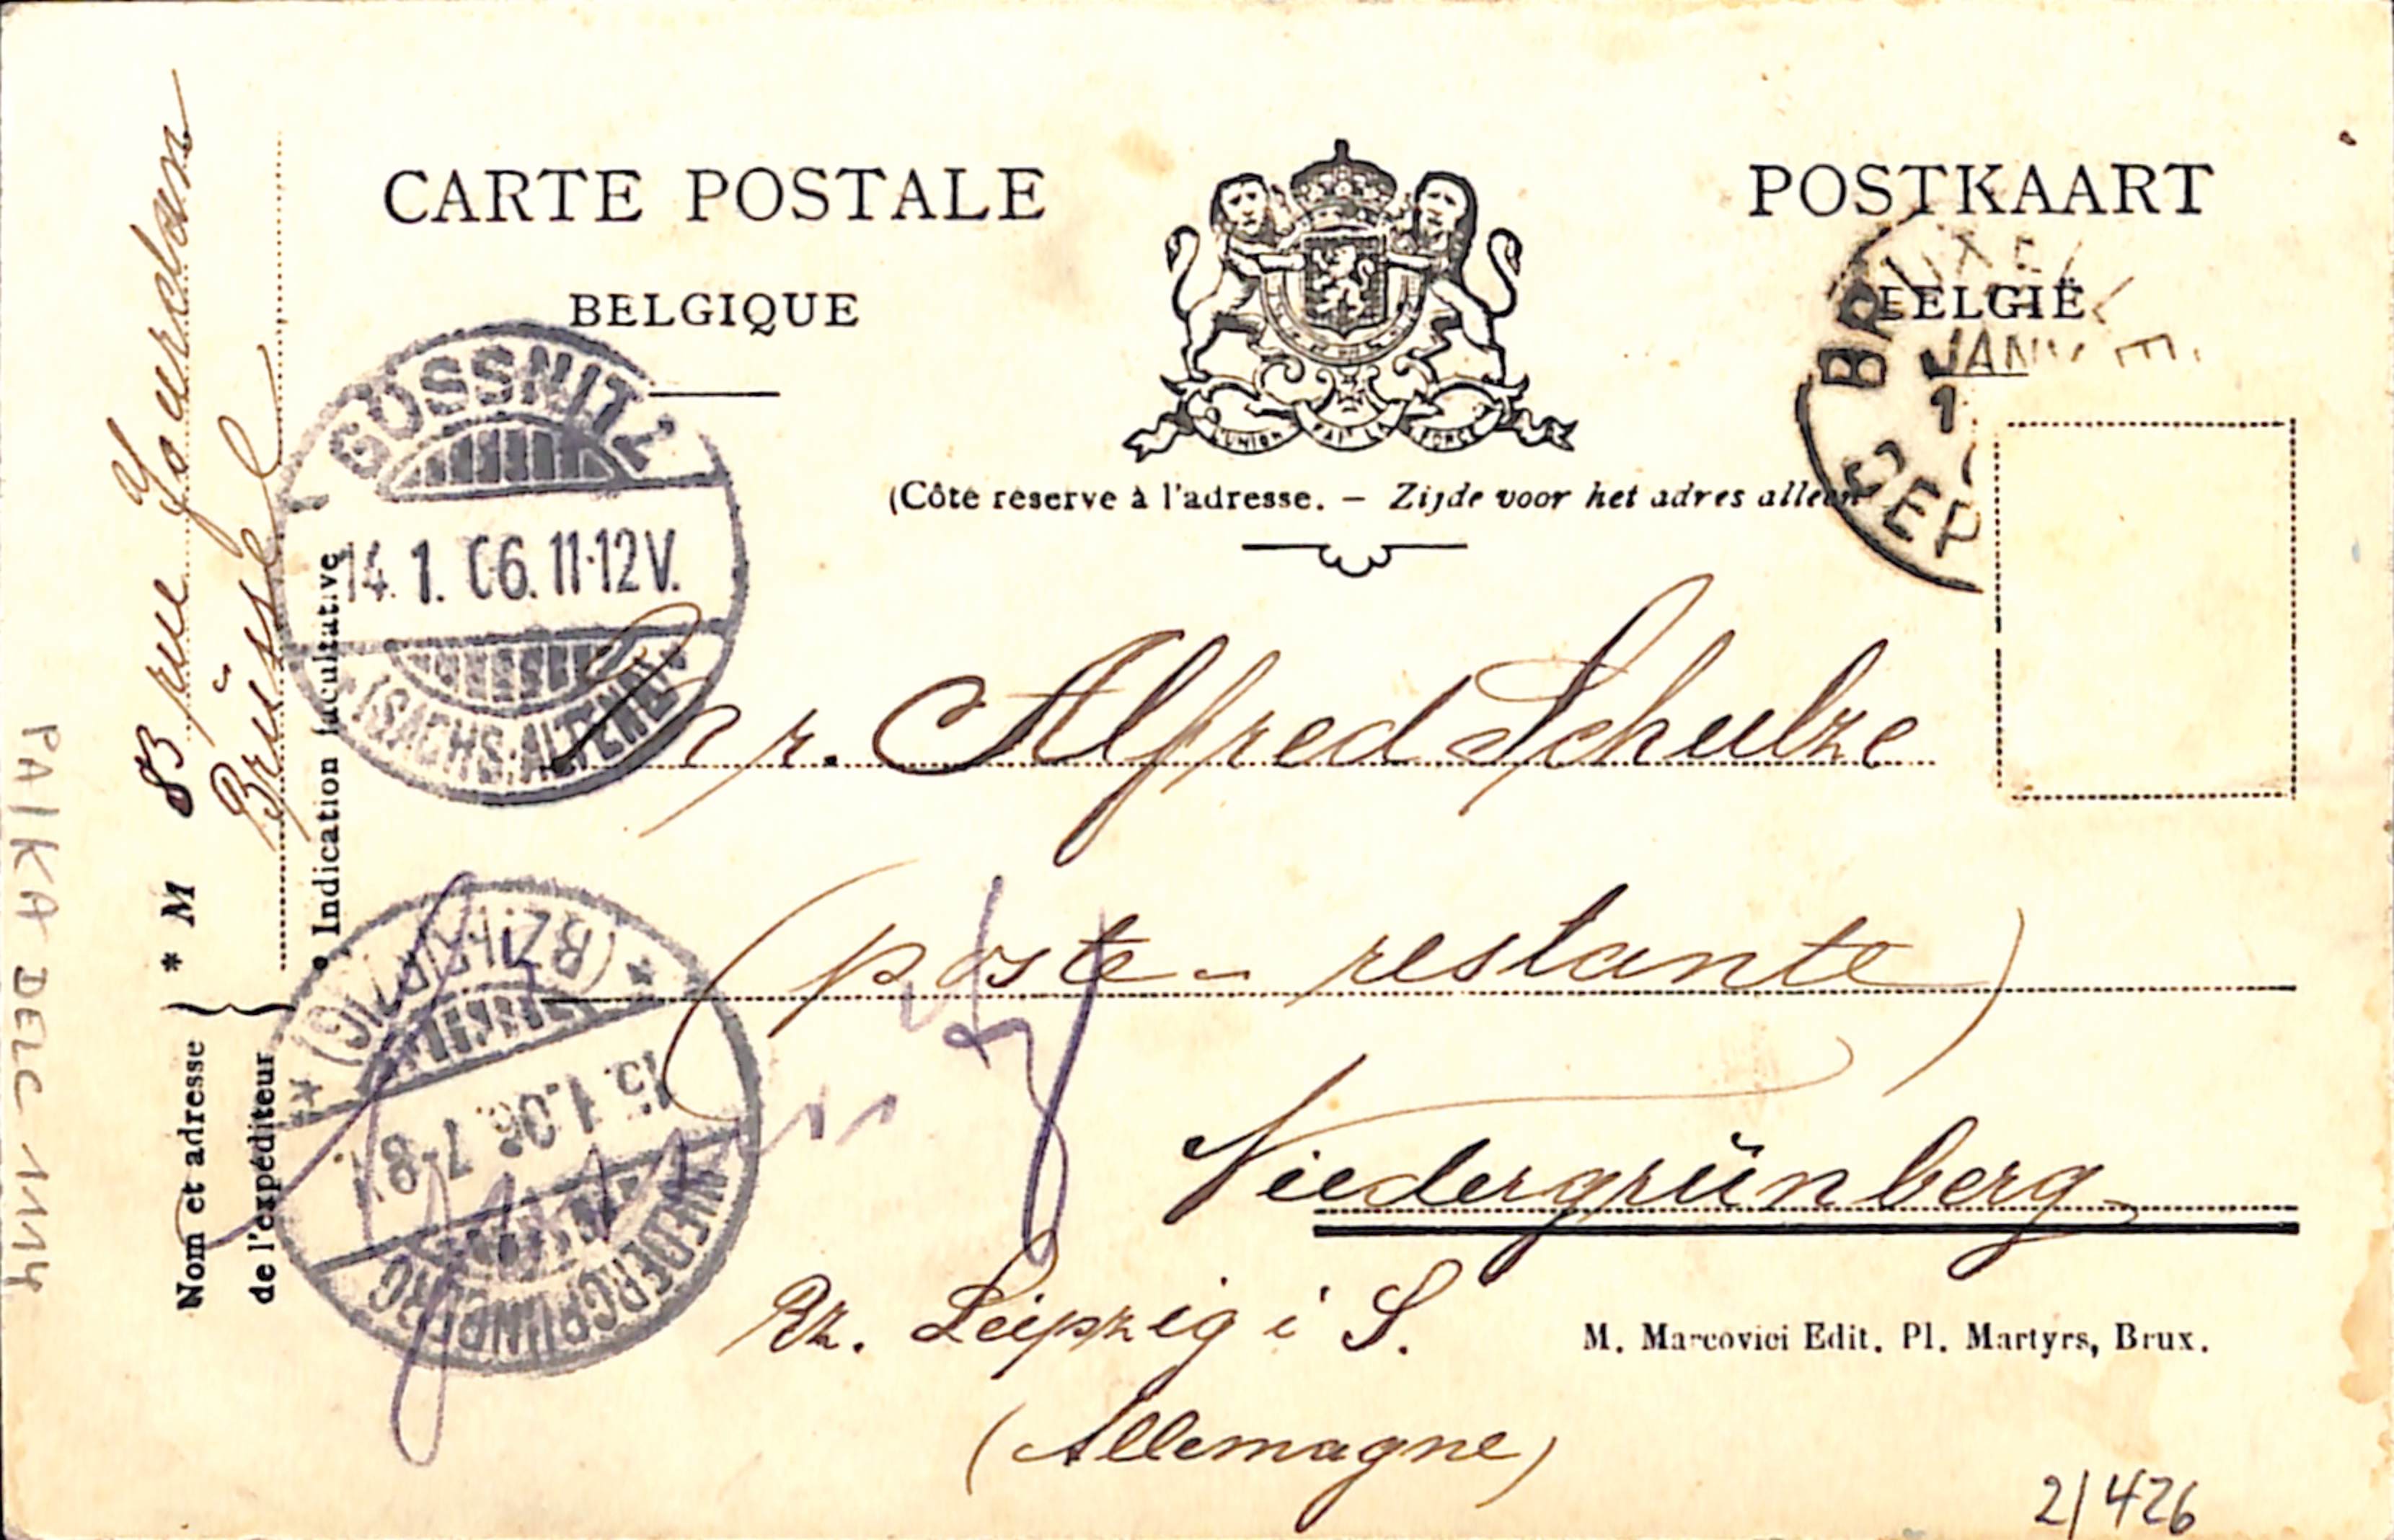 CARTE POSTALE
POSTKAART
BELGIQUE
BELGIË
L'UNION FAIT LA FORCE
(Côté réservé à l'adresse. — Zijde voor het adres alleen
JANV
1
DEP
GÖSSNITZ
14. 1. 06. 11-12V.
(SACHS.-ALTENB.)
Mr. Alfred Schulze
(poste-restante)
Niedergrünberg
Bz. Leipzig i S.
(Allemagne)
M. Marcovici Edit. Pl. Martyrs, Brux.
NIEDERGRÜNBERG
15.1.06. 7-8V.
(BZ. LEIPZIG)
Nom et adresse
de l'expéditeur
* M 83 rue Jourdan
Brüssel
* Indication facultative
2/426